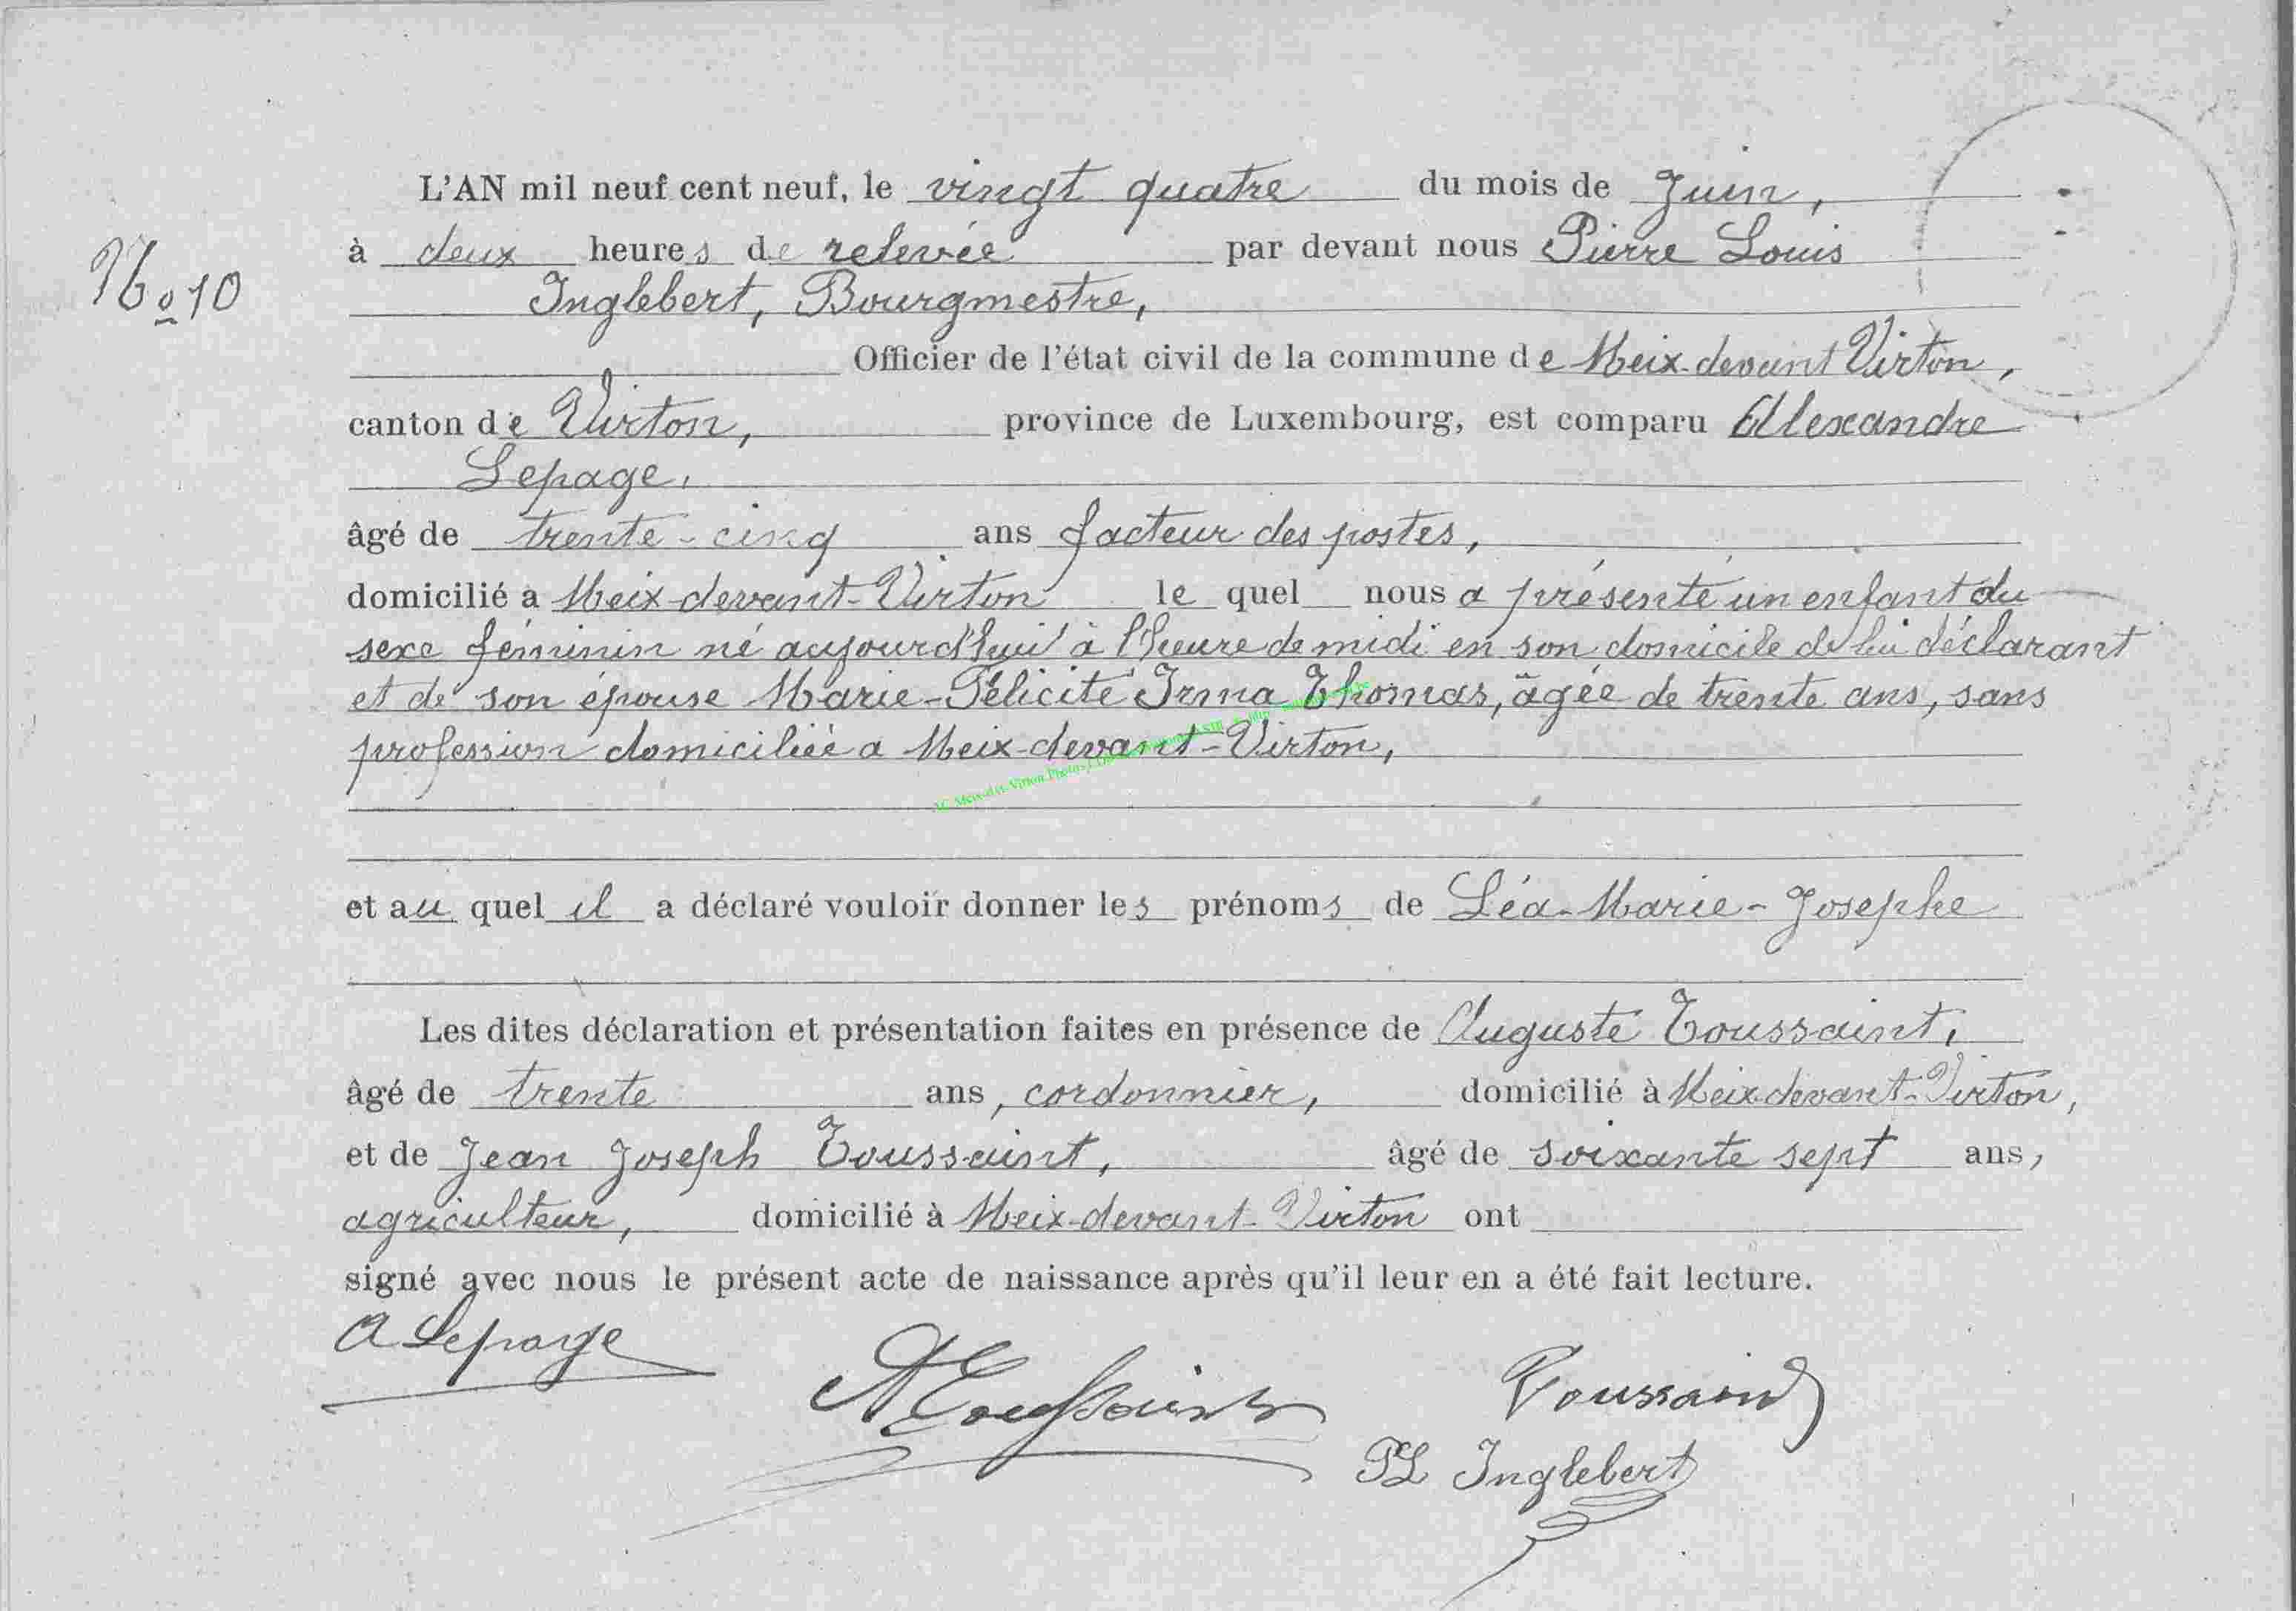 L'AN mil neuf cent neuf, le vingt quatre du mois de Juin,
No 10
à deux heures de relevée par devant nous Pierre Louis
Inglebert, Bourgmestre,
Officier de l'état civil de la commune de Meix-devant Virton,
canton de Virton, province de Luxembourg, est comparu Allexandre
Lepage.
âgé de trente-cinq ans facteur des postes,
domicilié à Meix-devant-Virton le quel nous a présenté un enfant du
sexe féminin né aujourd'hui à l'heure de midi en son domicile de lui déclarant
et de son épouse Marie-Félicité Irma Thomas, âgée de trente ans, sans
profession domiciliée a Meix-devant-Virton,
et au quel il a déclaré vouloir donner les prénoms de Léa-Marie-Josephe
Les dites déclaration et présentation faites en présence de Auguste Toussaint,
âgé de trente ans, cordonnier, domicilié à Meix-devant-Virton,
et de Jean Joseph Toussaint, âgé de soixante sept ans,
agriculteur, domicilié à Meix-devant-Virton ont
signé avec nous le présent acte de naissance après qu'il leur en a été fait lecture.
A Lepage
A Toussaint
Toussaint
PL Inglebert